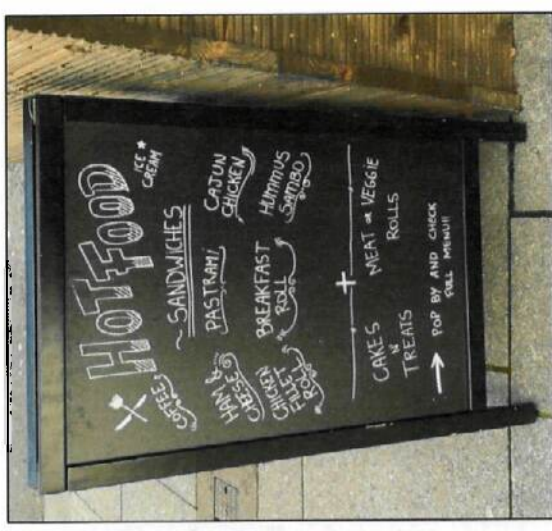 HOT FOOD
COFFEE
ICE
CREAM
~ SANDWICHES
HAM &
CHEESE
PASTRAMI
CAJUN
CHICKEN
CHICKEN
FILLET
ROLL
BREAKFAST
ROLL
HUMMUS
SAMBO
+
CAKES
N
TREATS
MEAT OR VEGGIE
ROLLS
→ POP BY AND CHECK
FULL MENU!!